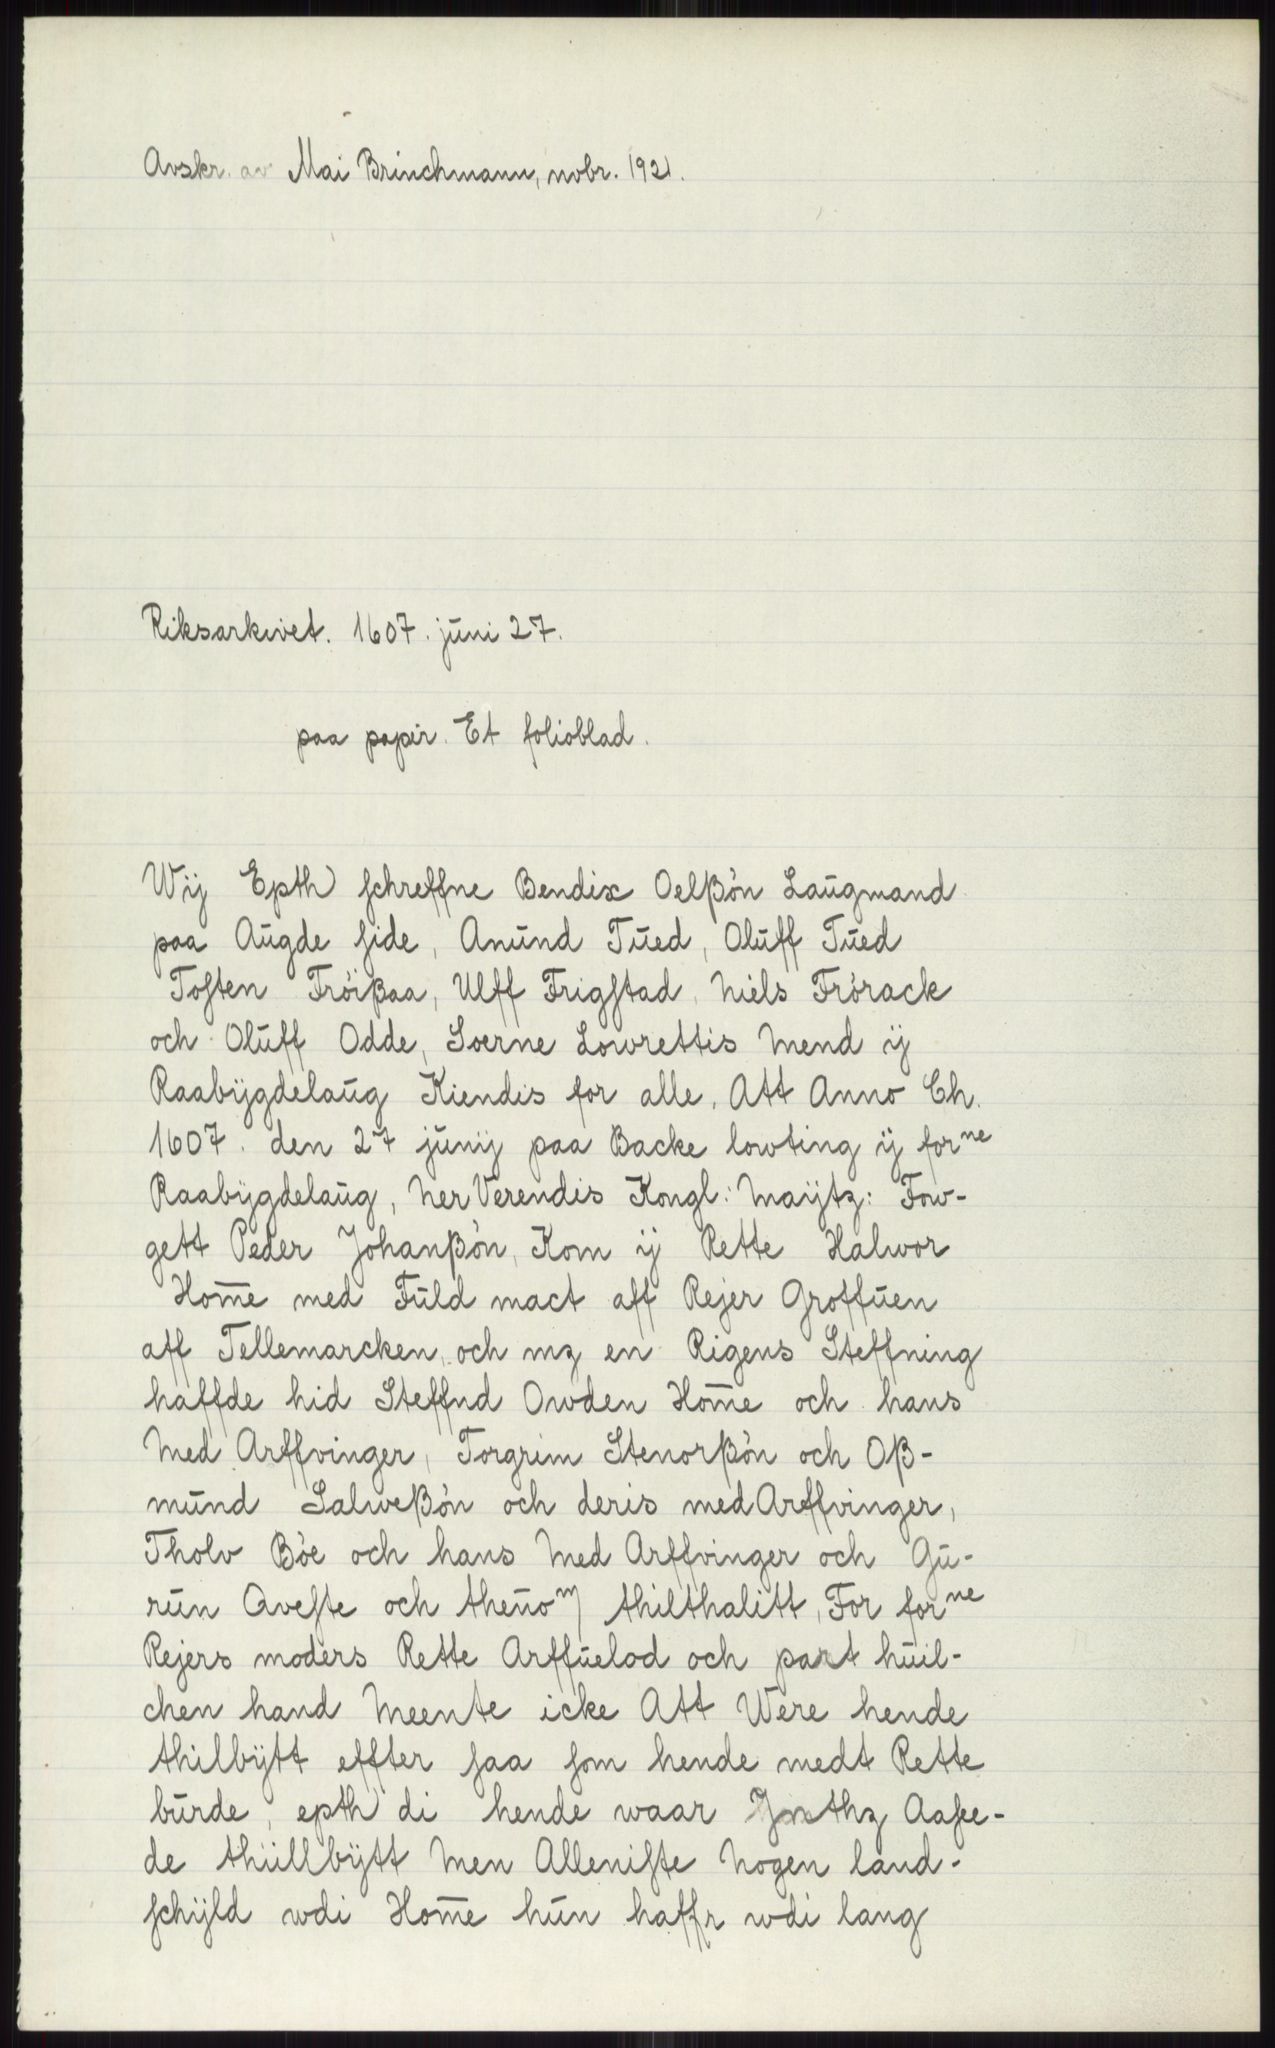 Avskr. av Mai Brinchmann, novbr. 1921.
Riksarkivet. 1607. juni 27.
paa papir. Et folioblad.
Wij Epth schreffne Bendix Oelßøn Laugmand
paa Augde side, Anund Tued, Oluff Tued
Tosten Frøißaa, Ulff Frigstad, Niels Frørack
och Oluff Odde, Soerne Lowrettis Mend ij
Raabijgdelaug Kiendis for alle, Att Anno Ch.
1607. den 27 junij paa Backe lowting ij forne
Raabijgdelaug, Ner Verendis Kongl: Maijtz: Fow-
gett Peder Johanßøn, Kom ij Rette Halwor
Hom̅e med Fuld mact aff Rejer Groffuen
aff Tellemarcken, och mz en Rigens Steffning
haffde hid Steffnd Owden Hom̅e och hans
Med Arffvinger, Torgrim Stenorßøn och Oß-
mund Salweßøn och deris med Arffvinger,
Tholv Bøe och hans Med Arffvinger och Gu-
run Qveste och thennom thilthalitt, For forne
Rejers moders Rette Arffuelod och part huil-
chen hand Meente icke Att Were hende
thilbijtt effter saa som hende medt Rette
burde, epth di hende waar Aasee-
de thiillbijtt Men Alleniste Nogen land-
schijld wdi Hom̅e hun haffr wdi lang